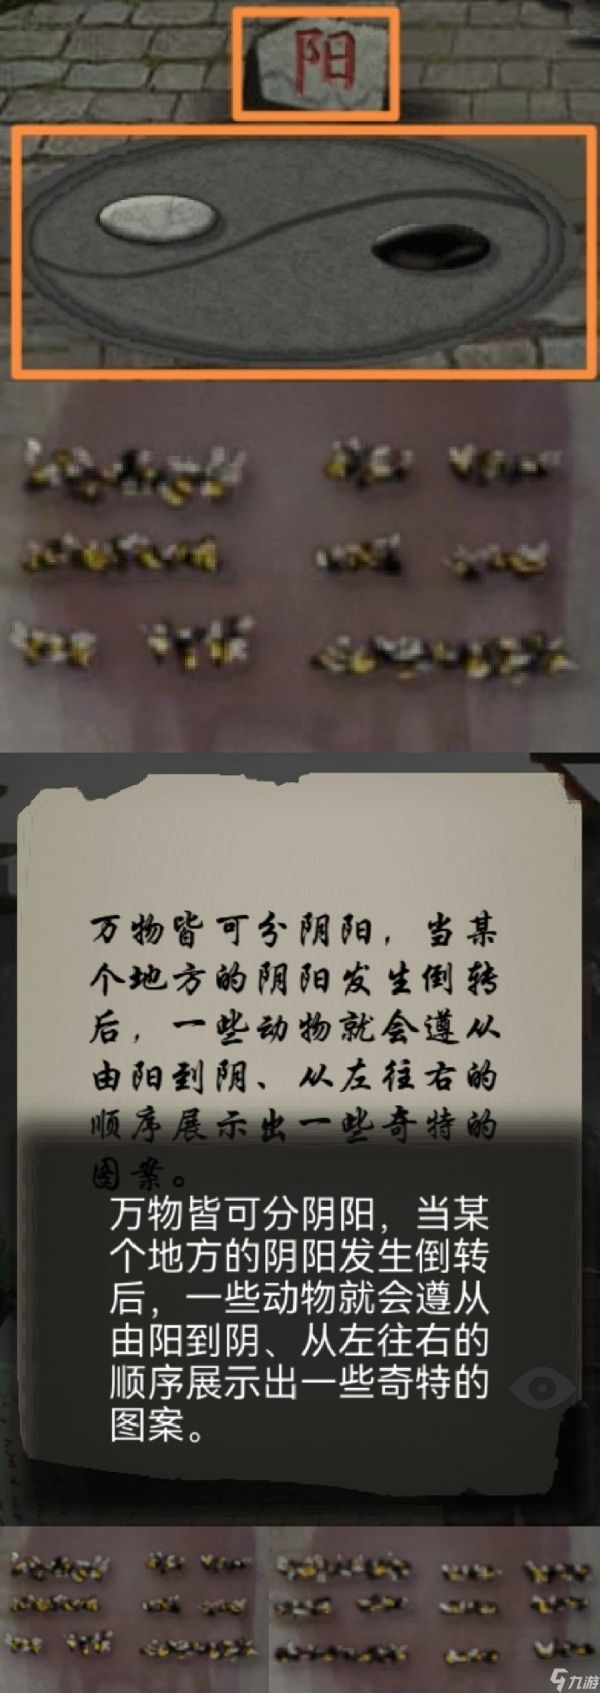 阳
万物皆可分阴阳，当某
个地方的阴阳发生倒转
后，一些动物就会遵从
由阳到阴、从左往右的
顺序展示出一些奇特的
图案。
万物皆可分阴阳，当某
个地方的阴阳发生倒转
后，一些动物就会遵从
由阳到阴、从左往右的
顺序展示出一些奇特的
图案。
九游